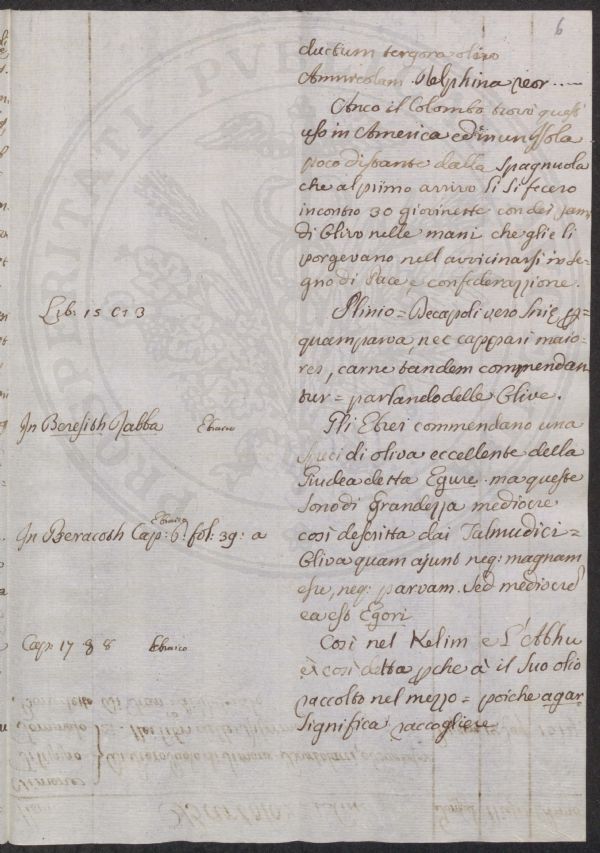 6
ductum tergora olivo
Amuricolam Delphina reor....
Anco il Colombo trovò quest'
uso in America ed in un Isola
poco distante dalla Spagnuola
che al primo arrivo li si fecero
incontro 30 giovinette con dei rami
di Olivo nelle mani che glie li
porgevano nell'avvicinarsi in se-
gno di Pace, e confederazzione.
Lib: 15 C: 3
Plinio = Decapoli vero
quam parva, nec cappari maio-
res, carne tandem commendan
tur = parlando delle Olive.
In Beresith Rabba Ebraico
Gli Ebrei commendano una
specie di oliva eccellente della
Giudea detta Egure. ma queste
sono di Grandezza mediocre
In Beracoth Cap: 6: fol: 39: a
Ebraico
così descritta dai Talmudici =
Oliva quam ajunt neq: magnam
esse, neq: parvam. Sed mediocre
ea est Egori
Cap: 17 § 8 Ebraico
Così nel Kelim e L'Abhu
è così detta pche à il suo olio
raccolto nel mezzo = poiche agar
significa raccogliere
PROSPERITATI PVBL